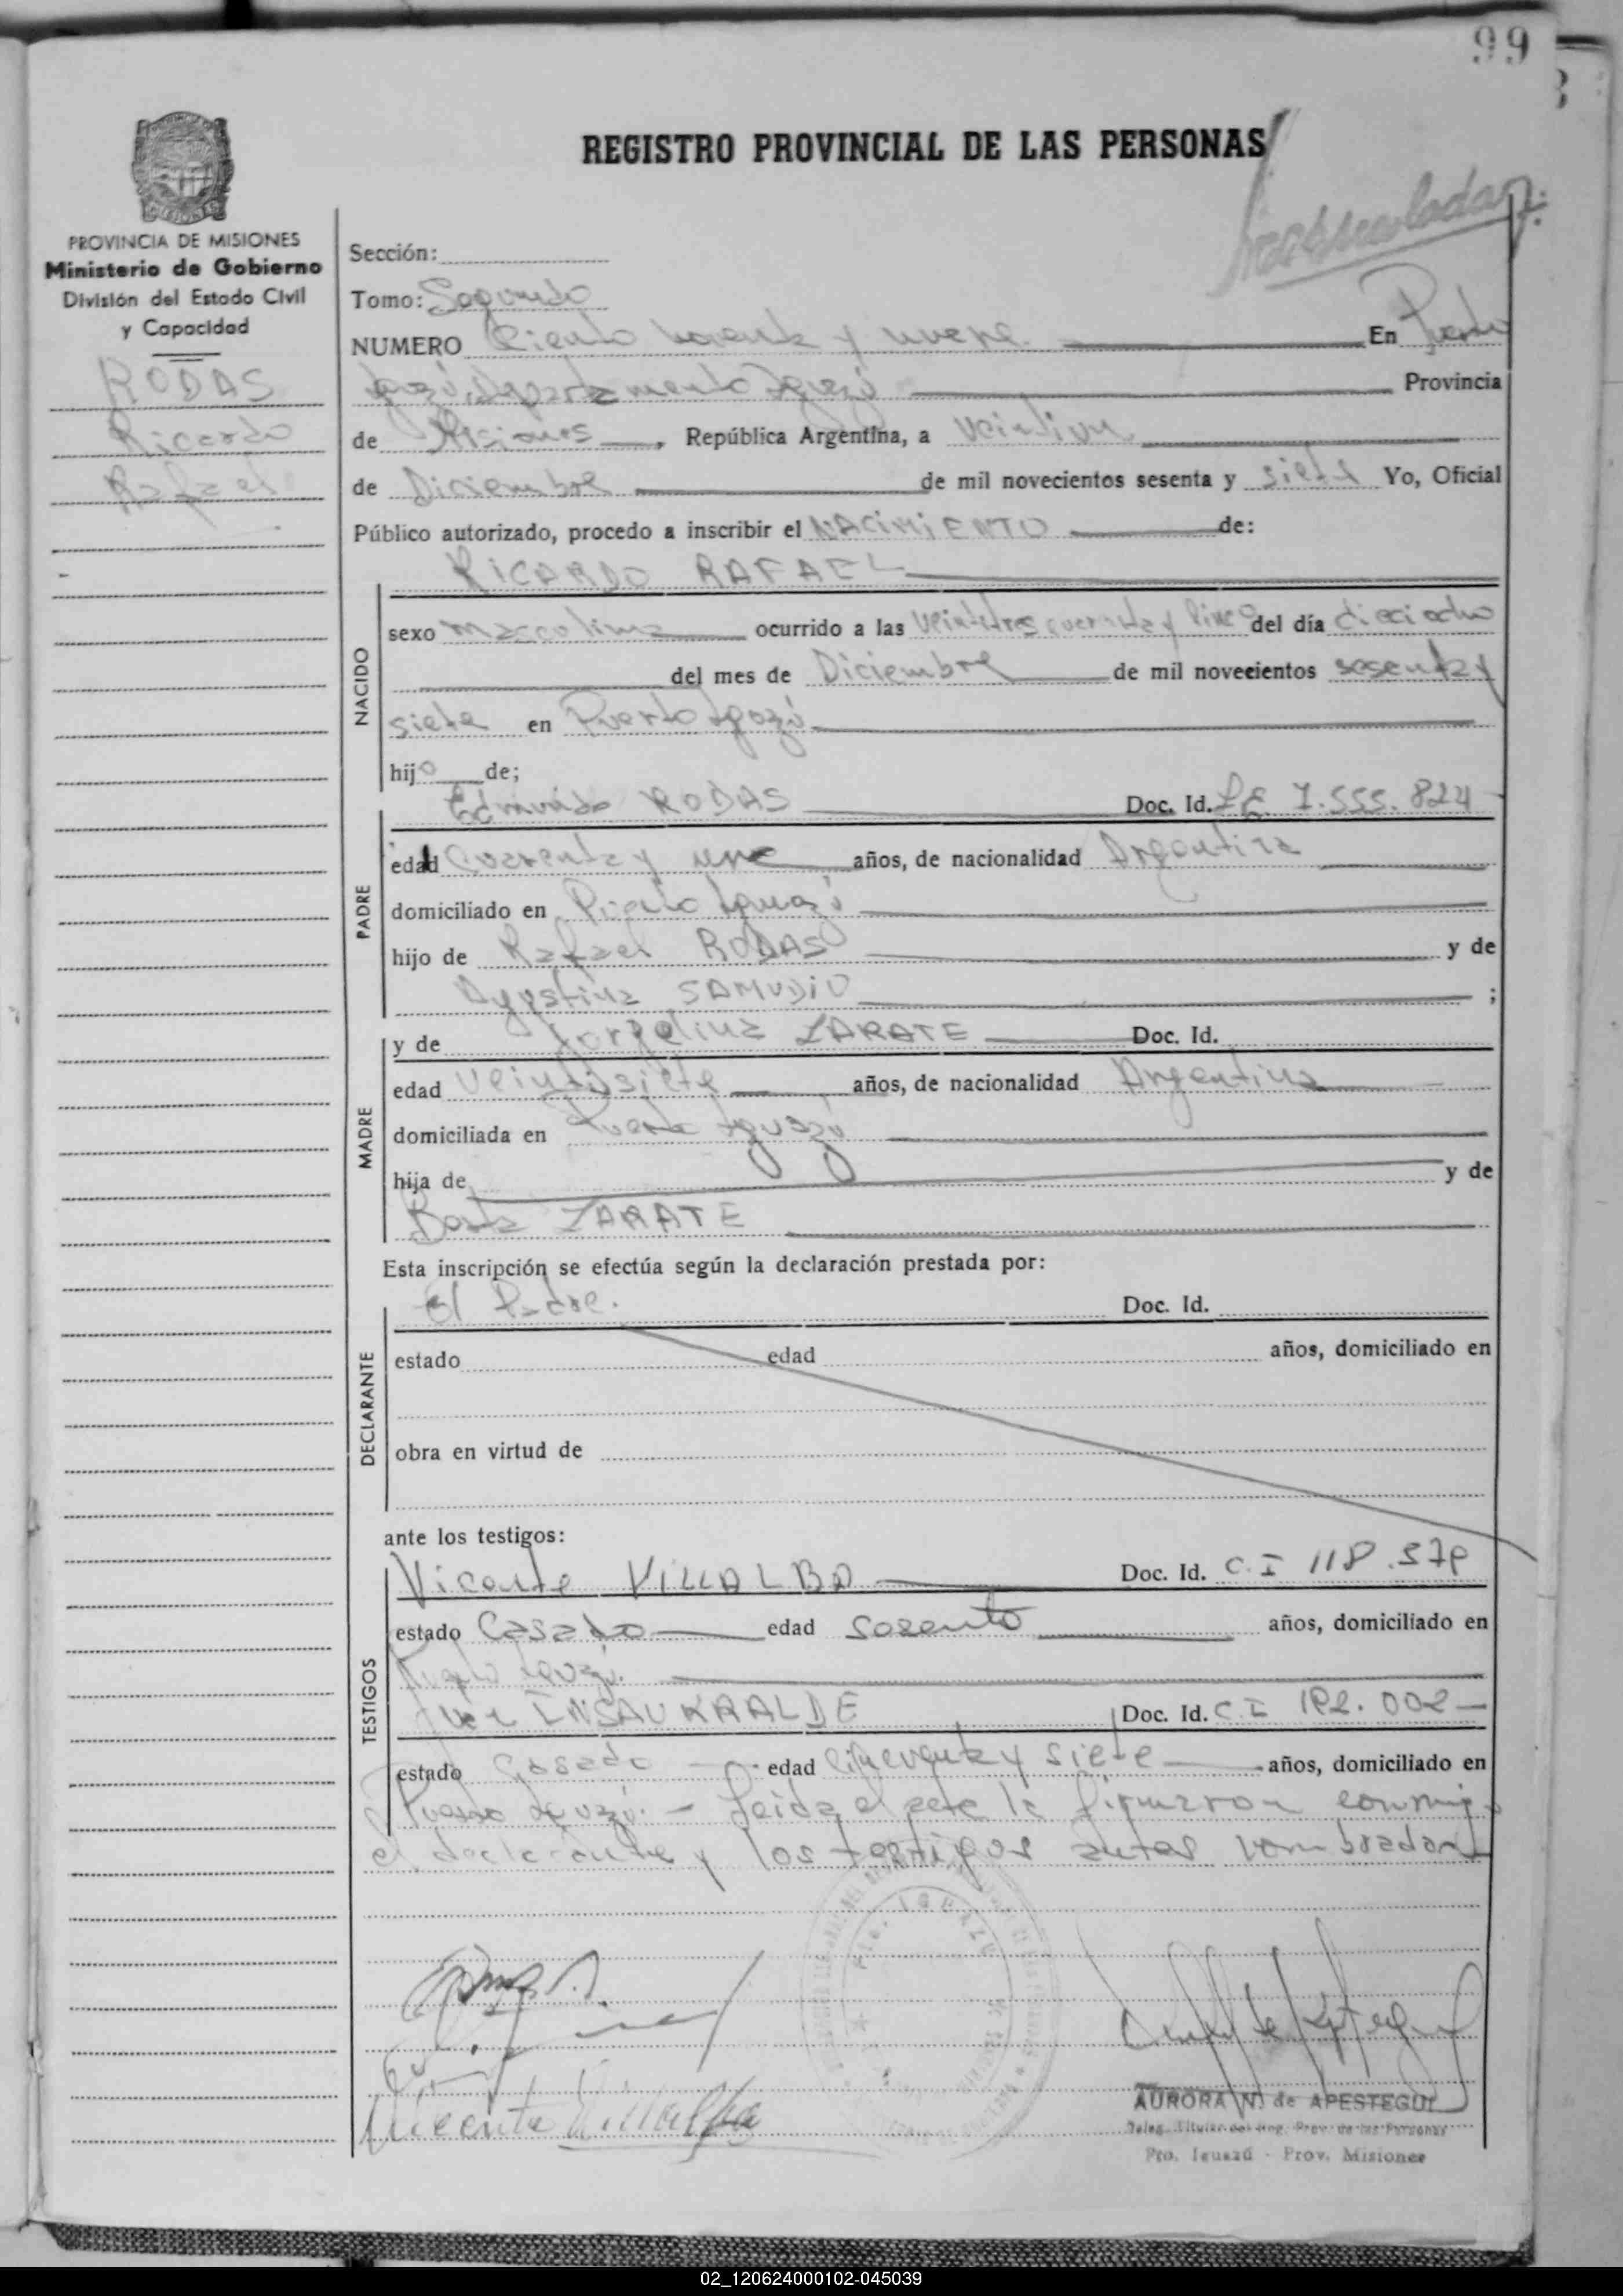 99
REGISTRO PROVINCIAL DE LAS PERSONAS
PROVINCIA DE MISIONES
Ministerio de Gobierno
División del Estado Civil
y Capacidad
RODAS
Ricardo
Rafael
Sección:
Tomo: Segundo
NUMERO Ciento noventa y nueve. En Puerto
Iguazú, Departamento Iguazú Provincia
de Misiones, República Argentina, a veintiun
de Diciembre de mil novecientos sesenta y siete Yo, Oficial
Público autorizado, procedo a inscribir el NACIMIENTO de:
RICARDO RAFAEL
NACIDO
sexo masculino ocurrido a las veintitres cuarenta y cinco del día dieciocho
del mes de Diciembre de mil novecientos sesenta y
siete en Puerto Iguazú
hijo de;
PADRE
Edmundo RODAS Doc. Id. L.E. 7.555.824
edad cuarenta y uno años, de nacionalidad Argentina
domiciliado en Puerto Iguazú
hijo de Rafael RODAS y de
Agustina SAMUDIO ;
MADRE
y de Jorgelina ZARATE Doc. Id.
edad veintisiete años, de nacionalidad Argentina
domiciliada en Puerto Iguazú
hija de y de
ZARATE
Esta inscripción se efectúa según la declaración prestada por:
DECLARANTE
El Padre. Doc. Id.
estado edad años, domiciliado en
obra en virtud de
ante los testigos:
TESTIGOS
Vicente VILLALBA Doc. Id. C.I 118.
estado Casado edad años, domiciliado en
Puerto Iguazú.
INSAURRALDE Doc. Id. C.I 002
estado Casado edad cincuenta y siete años, domiciliado en
Puerto Iguazú. - Leida el acta la firmaron conmigo
el declarante y los testigos antes nombrados
Vicente Villalba
AURORA N. de APESTEGUI
Deleg. Titular del Reg. Prov. de las Personas
Pto. Iguazú - Prov. Misiones
02_120624000102-045039